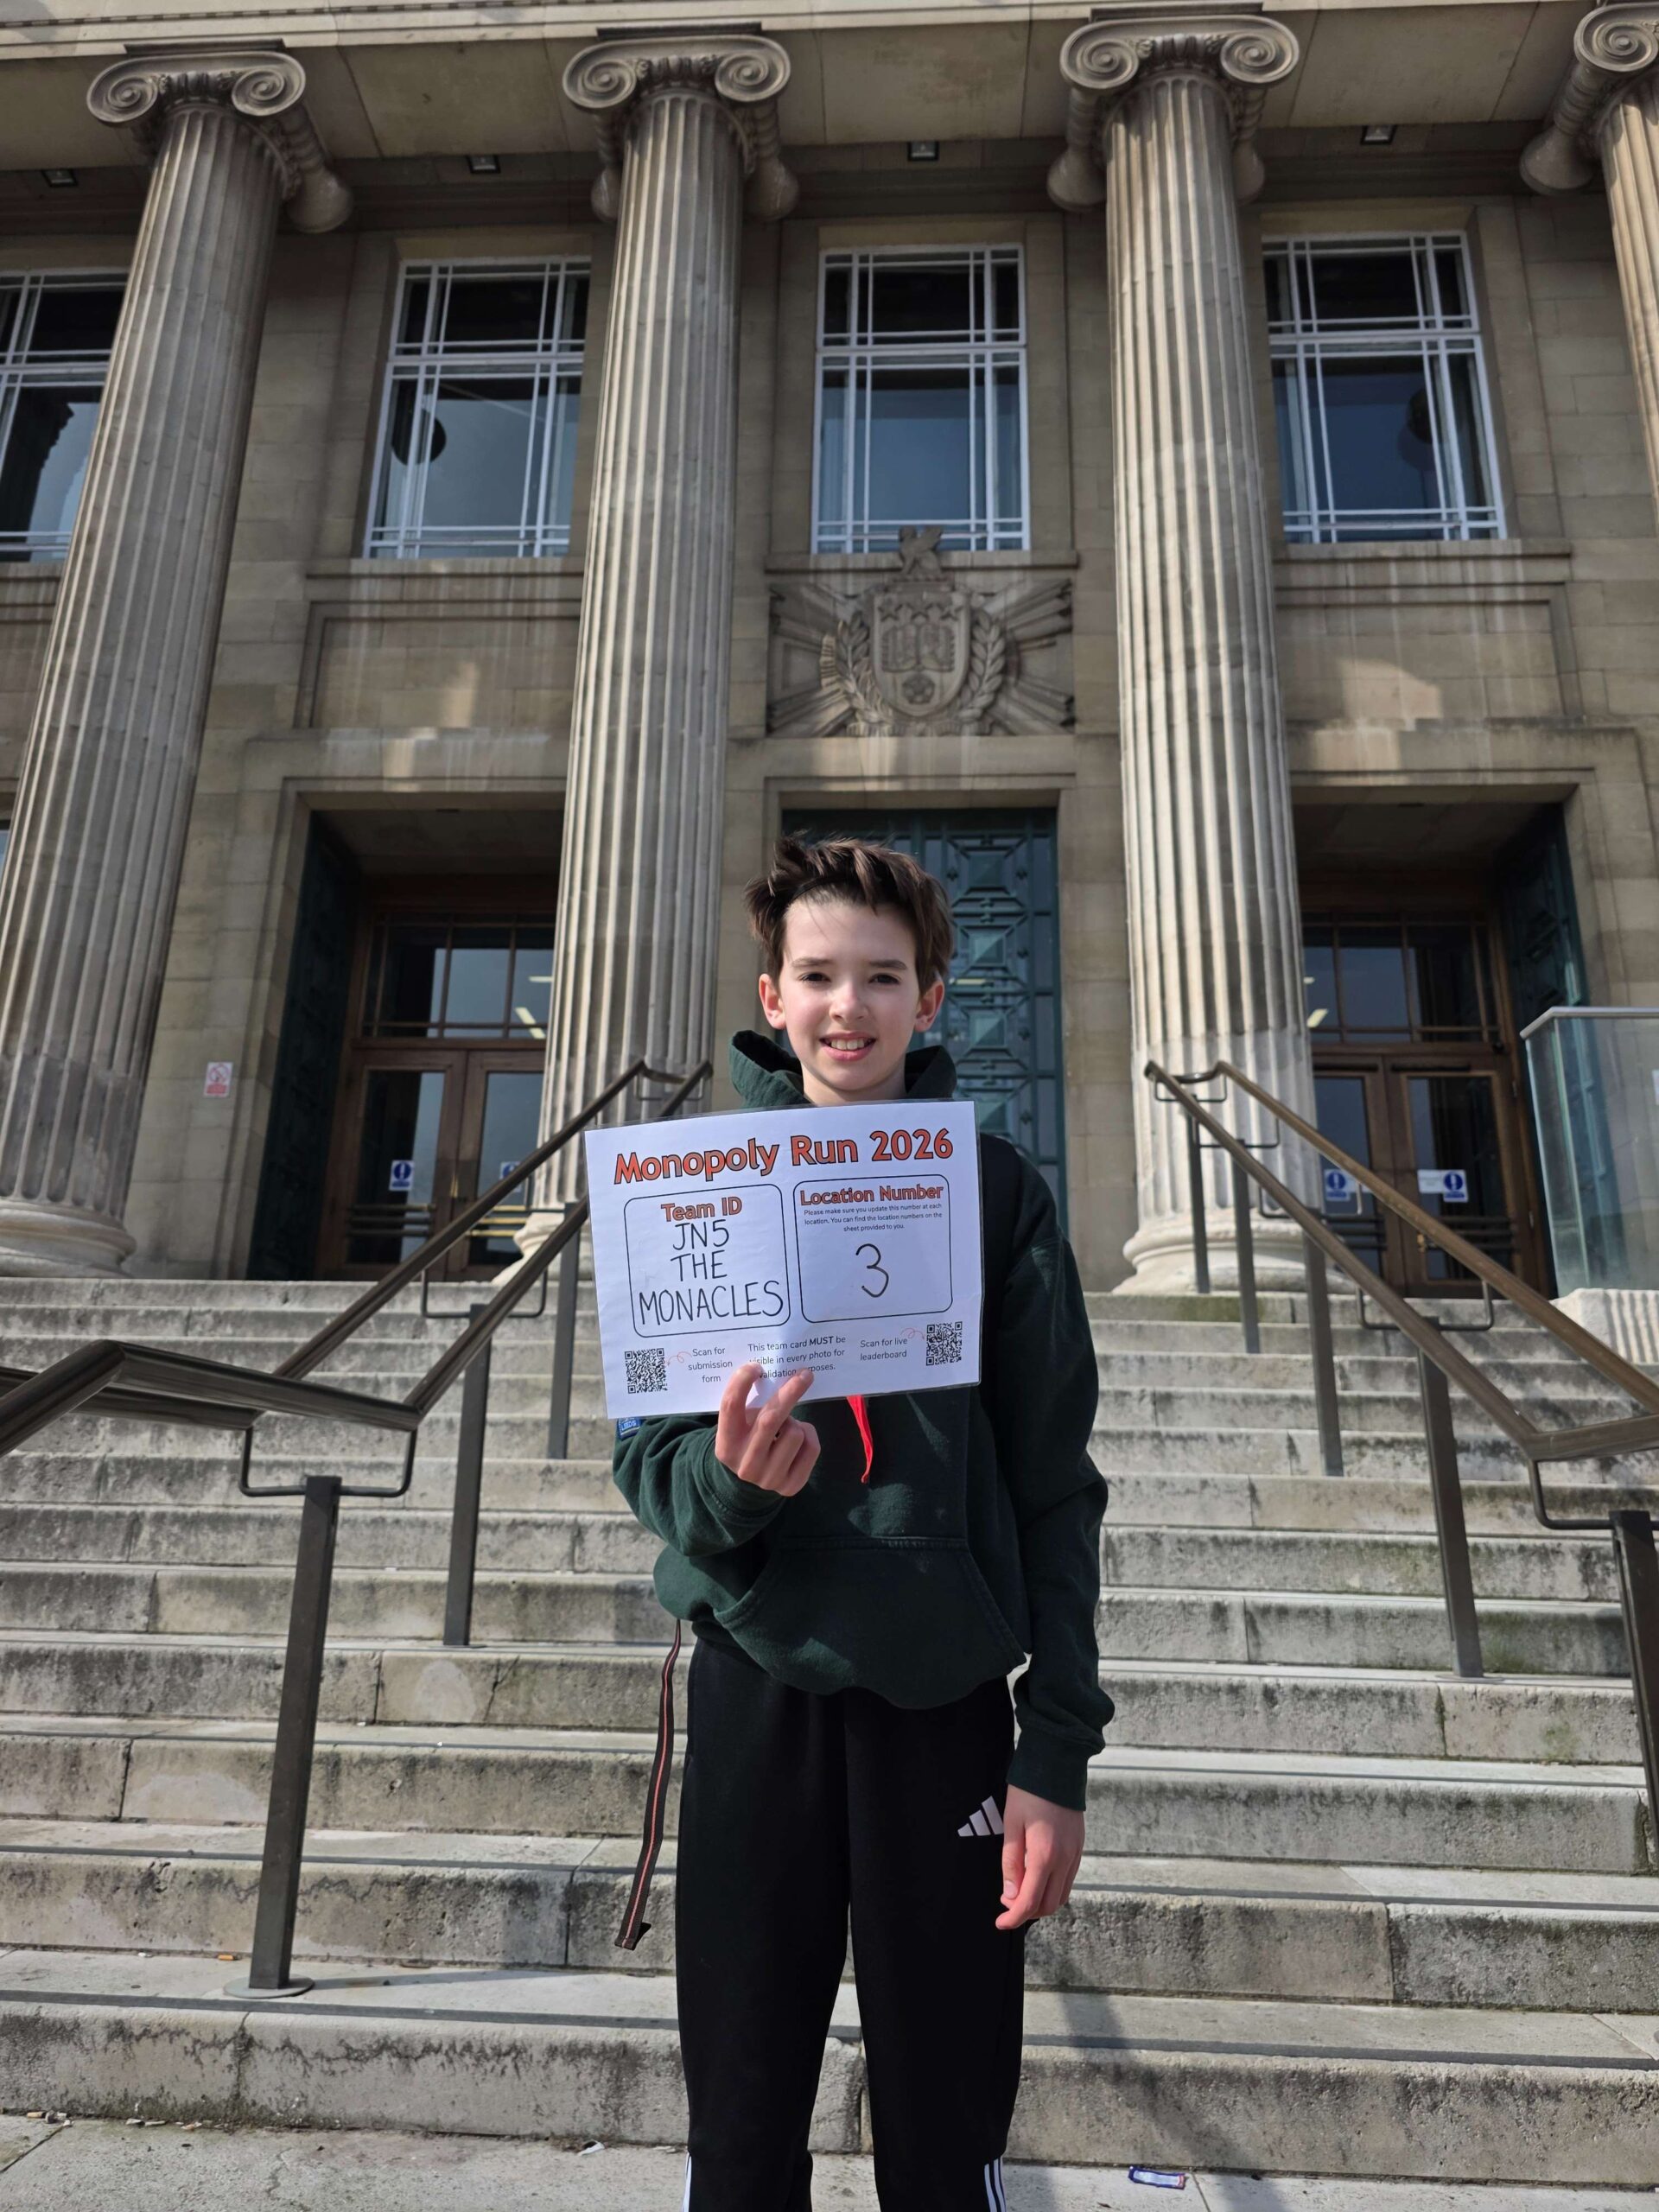 Monopoly Run 2026
Team ID
JN5
THE
MONACLES
Location Number
Please make sure you update this number at each
location. You can find the location numbers on the
sheet provided to you.
3
Scan for
submission
form
This team card MUST be
visible in every photo for
validation purposes.
Scan for live
leaderboard